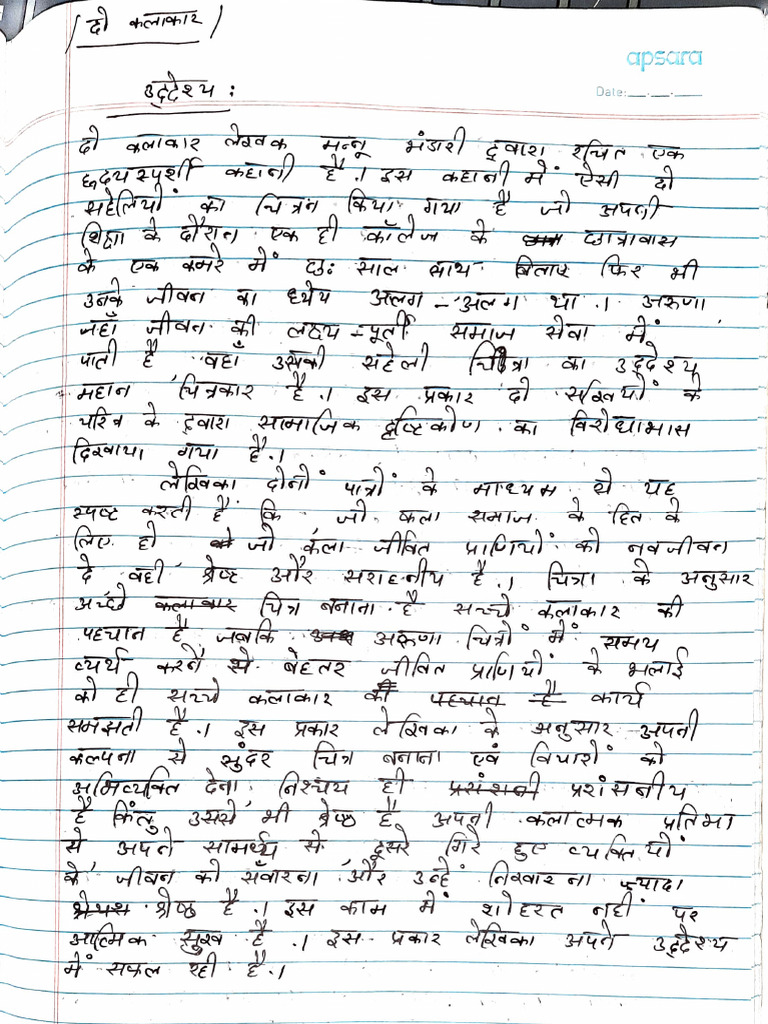 दो कलाकार
apsara
Date:
उद्देश्य :
दो कलाकार लेखक मन्नू भंडारी द्वारा रचित एक
हृदयस्पर्शी कहानी है । इस कहानी में ऐसी दो
सहेलियों का चित्रन किया गया है जो अपनी
शिक्षा के दौरान एक ही कॉलेज के छात्रावास
के एक कमरे में छः साल साथ बिताए फिर भी
उनके जीवन का ध्येय अलग - अलग था । अरुणा
जहाँ जीवन की लक्ष्य - पूर्ती समाज सेवा में
पाती है वहाँ उसकी सहेली चित्रा का उद्देश्य
महान चित्रकार है । इस प्रकार दो सखियों के
चरित्र के द्वारा सामाजिक दृष्टिकोण का विरोधाभास
दिखाया गया है ।
लेखिका दोनों पात्रों के माध्यम से यह
स्पष्ट करती है कि जो कला समाज के हित के
लिए हो जो कला जीवित प्राणियों को नवजीवन
दे वही श्रेष्ट और सराहनीय है । चित्रा के अनुसार
अच्छे कलाकार चित्र बनाना है सच्चे कलाकार की
पहचान है जबकि अरुणा चित्रों में समय
व्यर्थ करने से बेहतर जीवित प्राणियों के भलाई
को ही सच्चे कलाकार की पहचान है कार्य
समझती है । इस प्रकार लेखिका के अनुसार अपनी
कल्पना से सुंदर चित्र बनाना एवं विचारों को
अभिव्यक्ति देना निश्चय ही प्रसंशनी प्रशंसनीय
है किंतु उससे भी श्रेष्ठ है अपनी कलात्मक प्रतिभा
से अपने सामर्थ्य से दूसरे गिरे हुए व्यक्तियों
के जीवन को सँवारना और उन्हें निखारना ज़्यादा
श्रेष्ठ है । इस काम में शोहरत नहीं पर
आत्मिक सुख है । इस प्रकार लेखिका अपने उद्देश्य
में सफल रही है ।